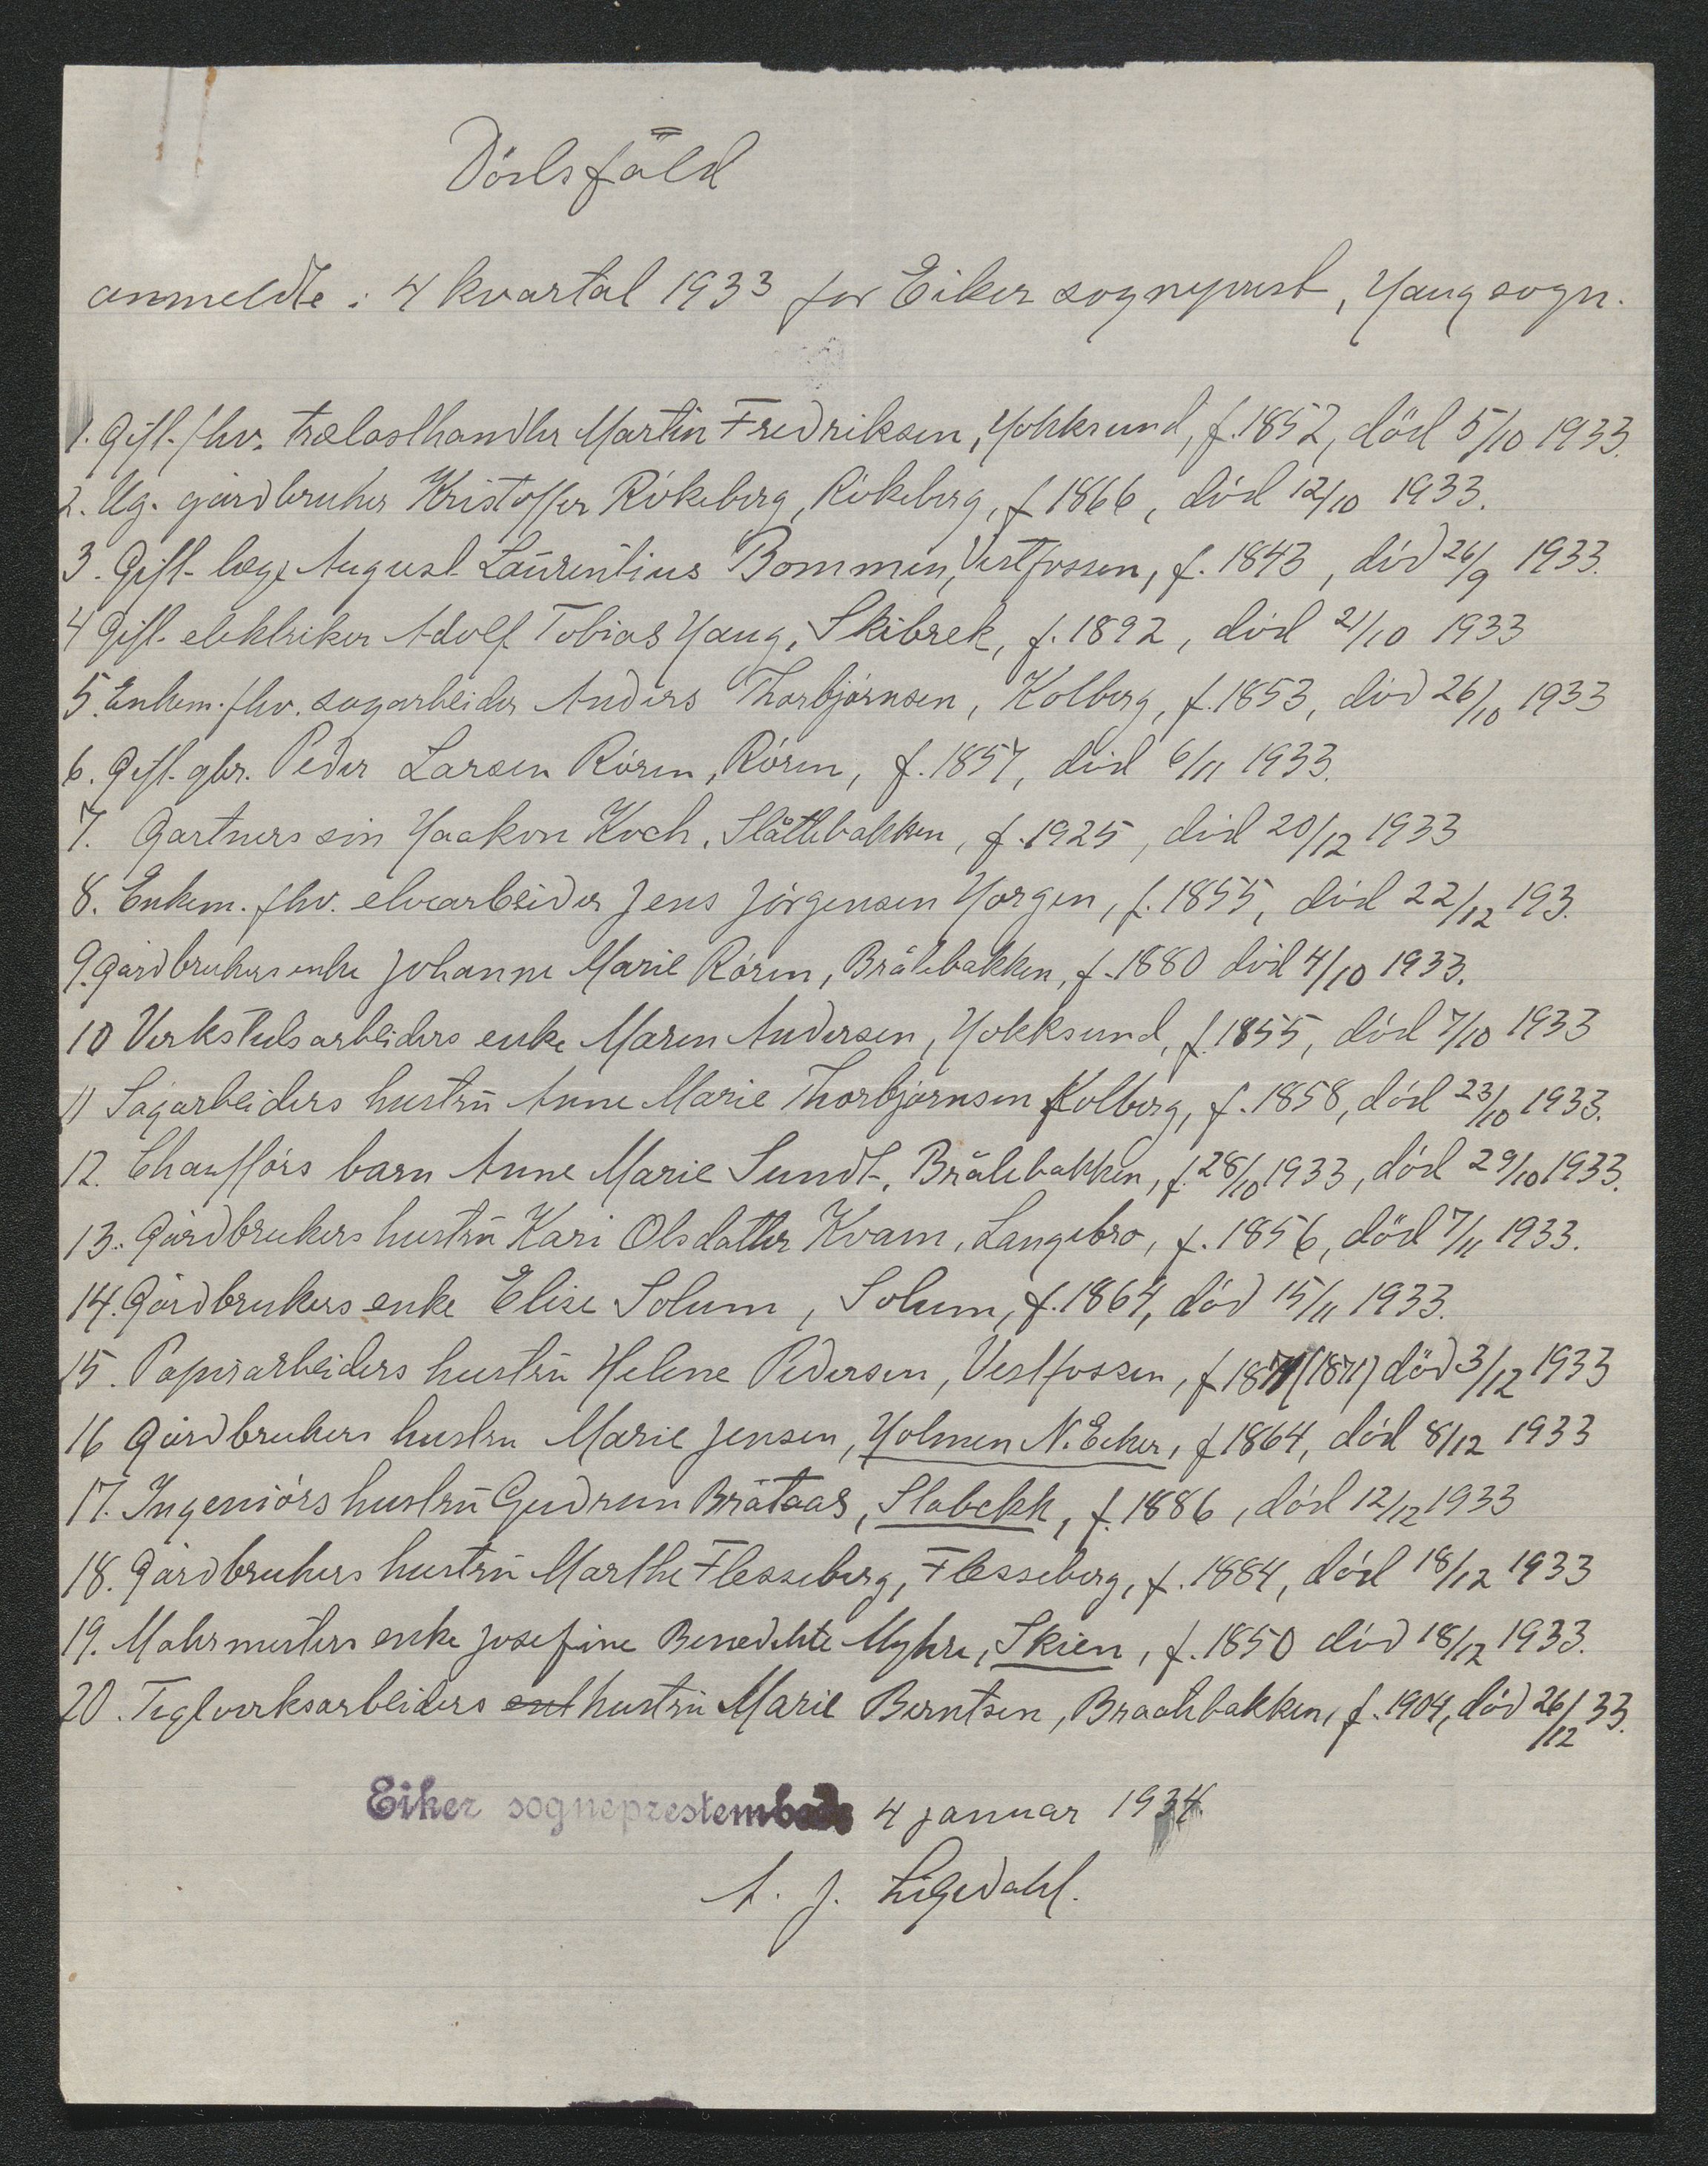 Dödsfald
anmeldte i 4 kvartal 1933 for Eiker sogneprest, Haug sogn.
1. Gift. fhv. trælasthandler Martin Fredriksen, Hokksund, f. 1852, död 5/10 1933.
2. Ug. gårdbruker Kristoffer Rökeberg, Rökeberg, f 1866, död 12/10 1933.
3. Gift. læge August Laurentius Bommen, Vestfossen, f. 1843, död 26/9 1933.
4 Gift. elektriker Adolf Tobias Haug, Skibrek, f. 1892, död 21/10 1933
5. Enkem. fhv. sagarbeider Anders Thorbjörnsen, Kolberg, f. 1853, död 26/10 1933
6. Gift. gbr. Peder Larsen Rören, Rören, f. 1857, död 6/11 1933.
7. Gartners sön Haakon Koch, Slåttebakken, f. 1925, död 20/12 1933
8. Enkem. fhv. elvearbeider Jens Jörgensen Horgen, f. 1855, död 22/12 193.
9. Gårdbrukers enke Johanne Marie Rören, Bråtebakken, f. 1880 död 4/10 1933.
10 Verkstedsarbeiders enke Maren Andersen, Hokksund, f. 1855, död 7/10 1933
11 Sagarbeiders hustru Anne Marie Thorbjörnsen Kolberg, f. 1858, död 23/10 1933.
12. Chaufförs barn Anne Marie Sundt, Bråtebakken, f. 28/10 1933, död 29/10 1933.
13. Gårdbrukers hustru Kari Olsdatter Kvam, Langebro, f. 1856, död 7/11 1933.
14. Gårdbrukers enke Elise Solum, Solum, f. 1864, död 15/11 1933.
15. Papirarbeiders hustru Helene Pedersen, Vestfossen, f 1871 (1871) död 3/12 1933
16 Gårdbrukers hustru Marie Jensen, Holmen N. Eiker, f 1864, död 8/12 1933
17. Ingeniörs hustru Gudrun Bråtaas, Stabekk, f. 1886, död 12/12 1933
18. Gårdbrukers hustru Marthe Flesseberg, Flesseberg, f. 1884, död 18/12 1933
19. Malermesters enke Josefine Benedikte Myhre, Skien, f. 1850 död 18/12 1933.
20. Teglverksarbeiders enk hustru Marie Berntsen, Braatebakken, f. 1904, död 26/12 33.
Eiker sogneprestembede 4 januar 1934.
A. J.